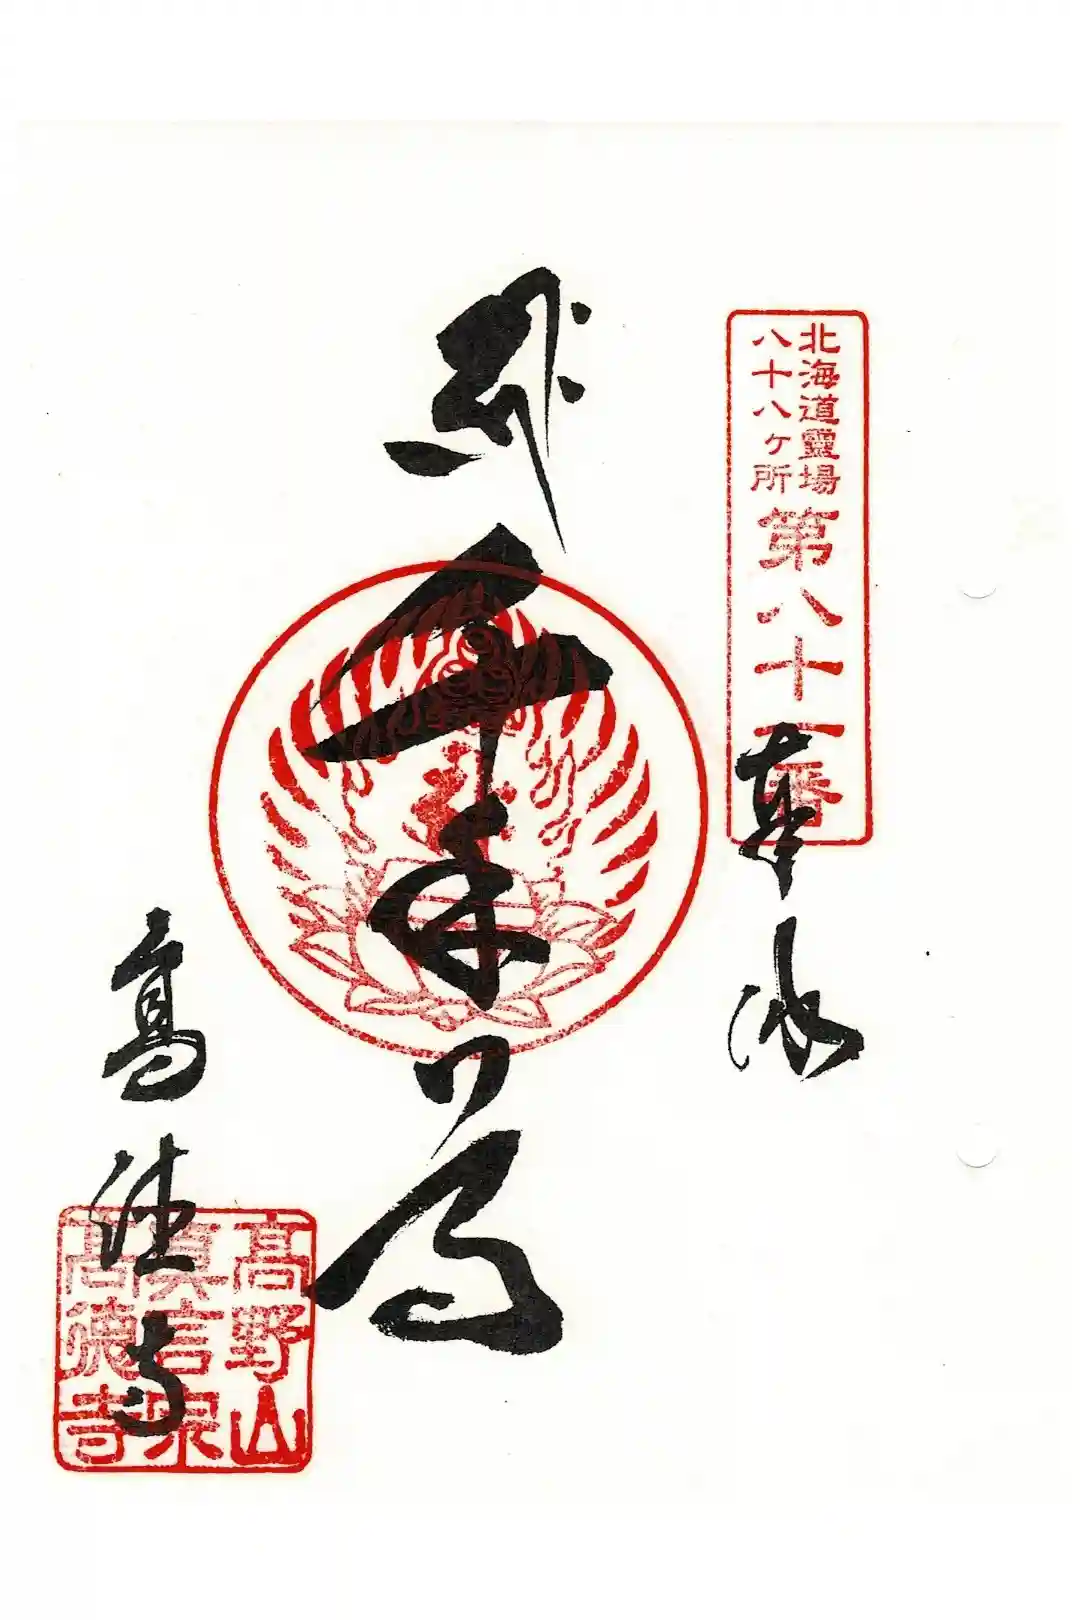 北海道靈場
八十八ヶ所
第八十一番
奉拝
千手
高徳寺
高野山
真言宗
高徳寺